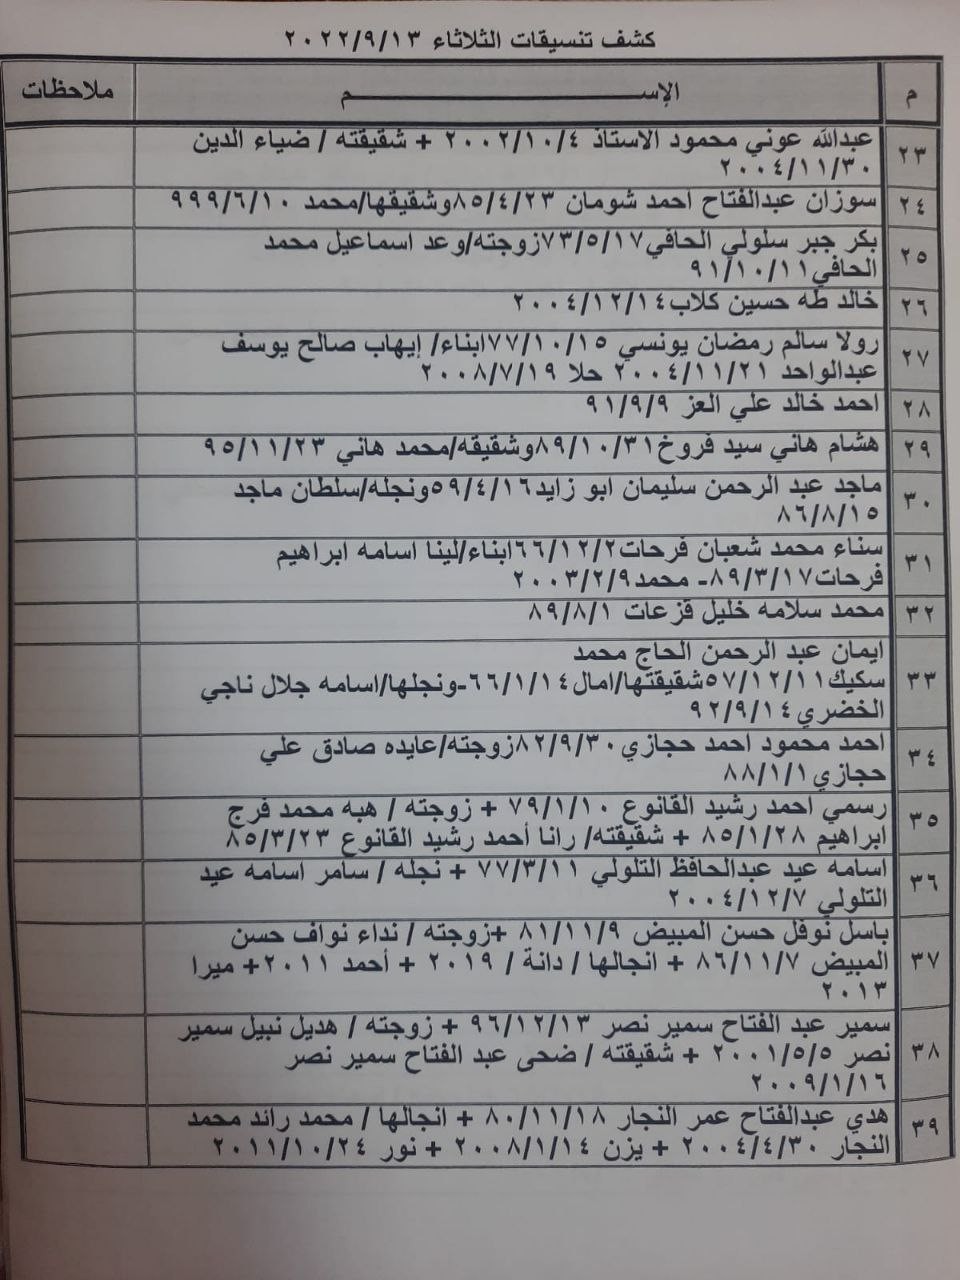 كشف تنسيقات الثلاثاء ٢٠٢٢/٩/١٣
م الإســـــــــم ملاحظات
٢٣ عبدالله عوني محمود الاستاذ ٢٠٠٢/١٠/٤ + شقيقته / ضياء الدين
٢٠٠٤/١١/٣٠
٢٤ سوزان عبدالفتاح احمد شومان ٨٥/٤/٢٣وشقيقها/محمد ٩٩٩/٦/١٠
٢٥ بكر جبر سلولي الحافي٧٣/٥/١٧زوجته/وعد اسماعيل محمد
الحافي٩١/١٠/١١
٢٦ خالد طه حسين كلاب٢٠٠٤/١٢/١٤
٢٧ رولا سالم رمضان يونسي ٧٧/١٠/١٥ابناء/ إيهاب صالح يوسف
عبدالواحد ٢٠٠٤/١١/٢١ حلا ٢٠٠٨/٧/١٩
٢٨ احمد خالد علي العز ٩١/٩/٩
٢٩ هشام هاني سيد فروخ٨٩/١٠/٣١وشقيقه/محمد هاني ٩٥/١١/٢٣
٣٠ ماجد عبد الرحمن سليمان ابو زايد٥٩/٤/١٦ونجله/سلطان ماجد
٨٦/٨/١٥
٣١ سناء محمد شعبان فرحات٦٦/١٢/٢ابناء/لينا اسامه ابراهيم
فرحات٨٩/٣/١٧- محمد٢٠٠٣/٢/٩
٣٢ محمد سلامه خليل قزعات ٨٩/٨/١
٣٣ ايمان عبد الرحمن الحاج محمد
سكيك٥٧/١٢/١١شقيقتها/امال٦٦/١/١٤-ونجلها/اسامه جلال ناجي
الخضري٩٢/٩/١٤
٣٤ احمد محمود احمد حجازي٨٢/٩/٣٠زوجته/عايده صادق علي
حجازي٨٨/١/١
٣٥ رسمي احمد رشيد القانوع ٧٩/١/١٠ + زوجته / هبه محمد فرج
ابراهيم ٨٥/١/٢٨ + شقيقته/ رانا أحمد رشيد القانوع ٨٥/٣/٢٣
٣٦ اسامه عيد عبدالحافظ التلولي ٧٧/٣/١١ + نجله / سامر اسامه عيد
التلولي ٢٠٠٤/١٢/٧
٣٧ باسل نوفل حسن المبيض ٨١/١١/٩ +زوجته / نداء نواف حسن
المبيض ٨٦/١١/٧ + انجالها / دانة / ٢٠١٩ + أحمد ٢٠١١+ ميرا
٢٠١٣
٣٨ سمير عبد الفتاح سمير نصر ٩٦/١٢/١٣ + زوجته / هديل نبيل سمير
نصر ٢٠٠١/٥/٥ + شقيقته / ضحى عبد الفتاح سمير نصر
٢٠٠٩/١/١٦
٣٩ هدي عبدالفتاح عمر النجار ٨٠/١١/١٨ + انجالها / محمد رائد محمد
النجار ٢٠٠٤/٤/٣٠ + يزن ٢٠٠٨/١/١٤ + نور ٢٠١١/١٠/٢٤